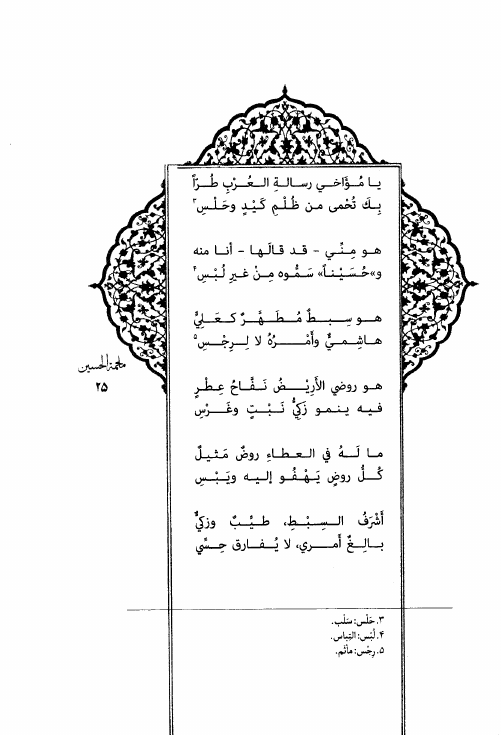 يا مُؤَاخي رسالةِ العُرْبِ طُرّاً
بِكَ تُحْمى من ظُلْمِ كَيْدٍ وحَلْسِ٣
هو مِنِّي - قد قالَها - أنا منه
و»حُسَيْناً» سَمُّوه مِنْ غيرِ لُبْسِ۴
هو سِبطٌ مُطَهَّرٌ كعَلِيٍّ
هاشِميٌّ وأَمْرُهُ لا لِرِجْسِ۵
هو روضي الأَرِيْضُ نَفَّاحُ عِطْرٍ
فيه ينمو زَكِيُّ نَبْتٍ وغَرْسِ
ما لَهُ في العطاءِ روضٌ مَثيلٌ
كُلُّ روضٍ يَهْفُو إليه ويَبْسِ
أشْرَفُ السِبْطِ، طيِّبٌ وزكيٌّ
بالِغٌ أمري، لا يُفارق حِسِّي
ملحمة الحسين
٢۵
٣. حَلْس: سَلْب.
۴. لُبْس: التِباس.
۵. رِجْس: مأثم.